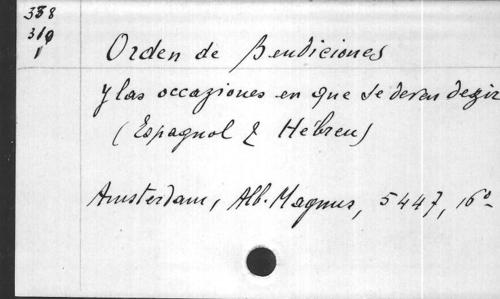 338
319
1
Orden de Bendiciones
y las occaziones en que se deven dezir
(Espagnol & Hébreu)
Amsterdam, Alb. Magnus, 5447, 16º